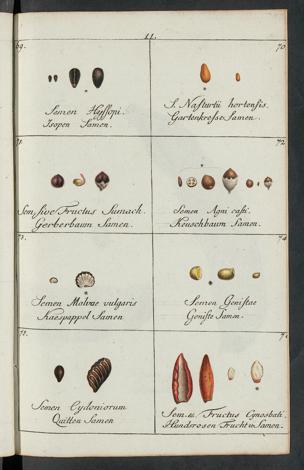 11.
69.
70.
Semen Hyssopi.
Isopen Samen.
S. Nasturtii hortensis.
Gartenkresse Samen.
71.
72.
Sem. sive Fructus Sumach.
Gerberbaum Samen.
Semen Agni casti.
Keuschbaum Samen.
73.
74.
Semen Malvae vulgaris
Kaespappel Samen
Semen Genistae
Geniste Samen.
75.
Semen Cydoniorum
Quitten Samen
Sem. et Fructus Cynosbati.
Hundsrosen Frucht u. Samen.